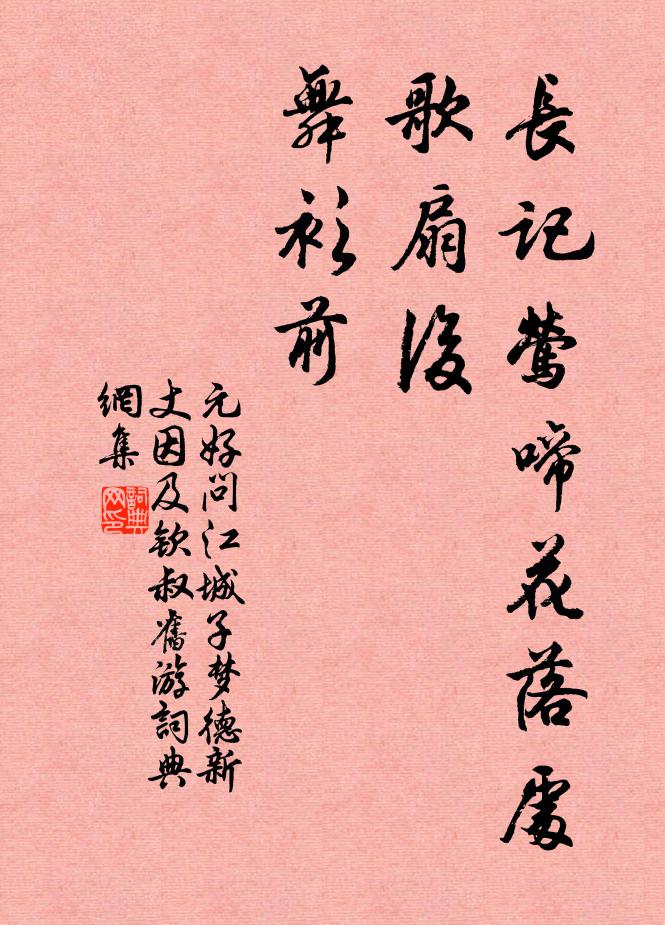 長記鶯啼花落處
歌扇後
舞衫前
元好问江城子梦德新
丈因及钦叔舊游詞典
網集
詞典网印